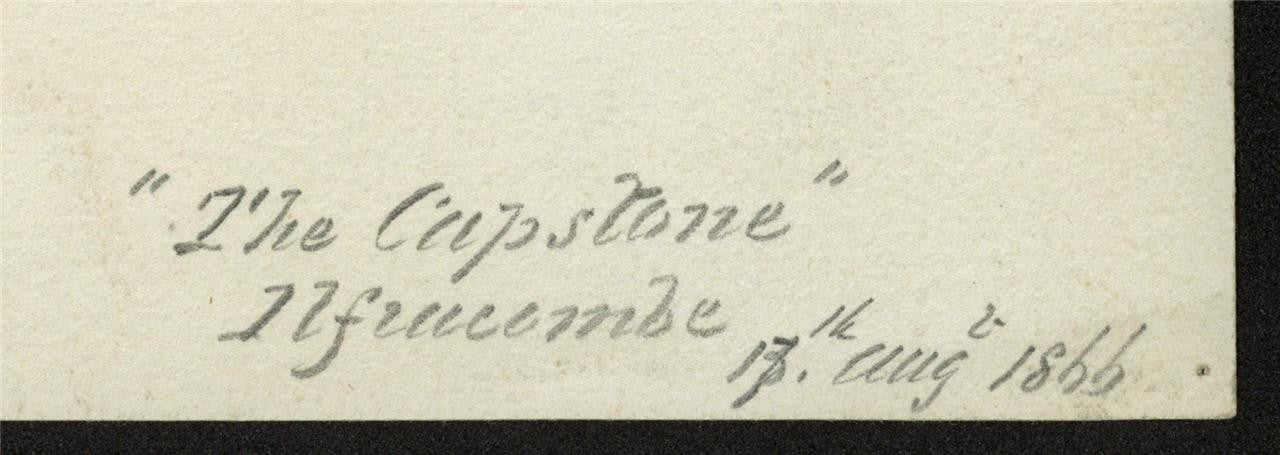 "The Capstone"
Ilfracombe
17.th Augt 1866